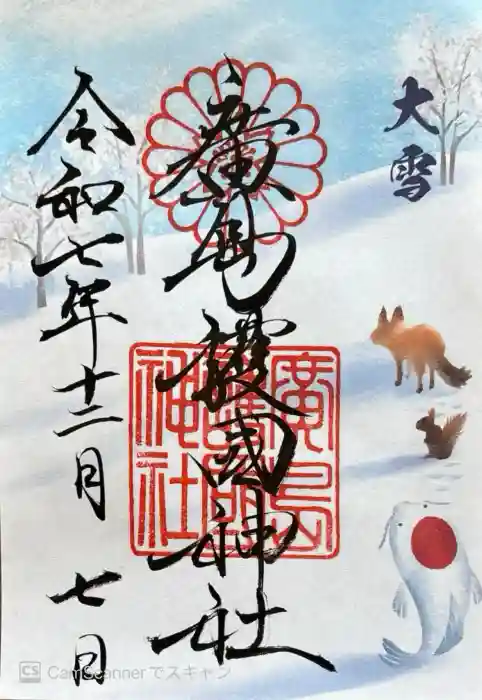 大雪
廣島護國神社
廣島
護國
神社
令和七年十二月七日
CS CamScannerでスキャン